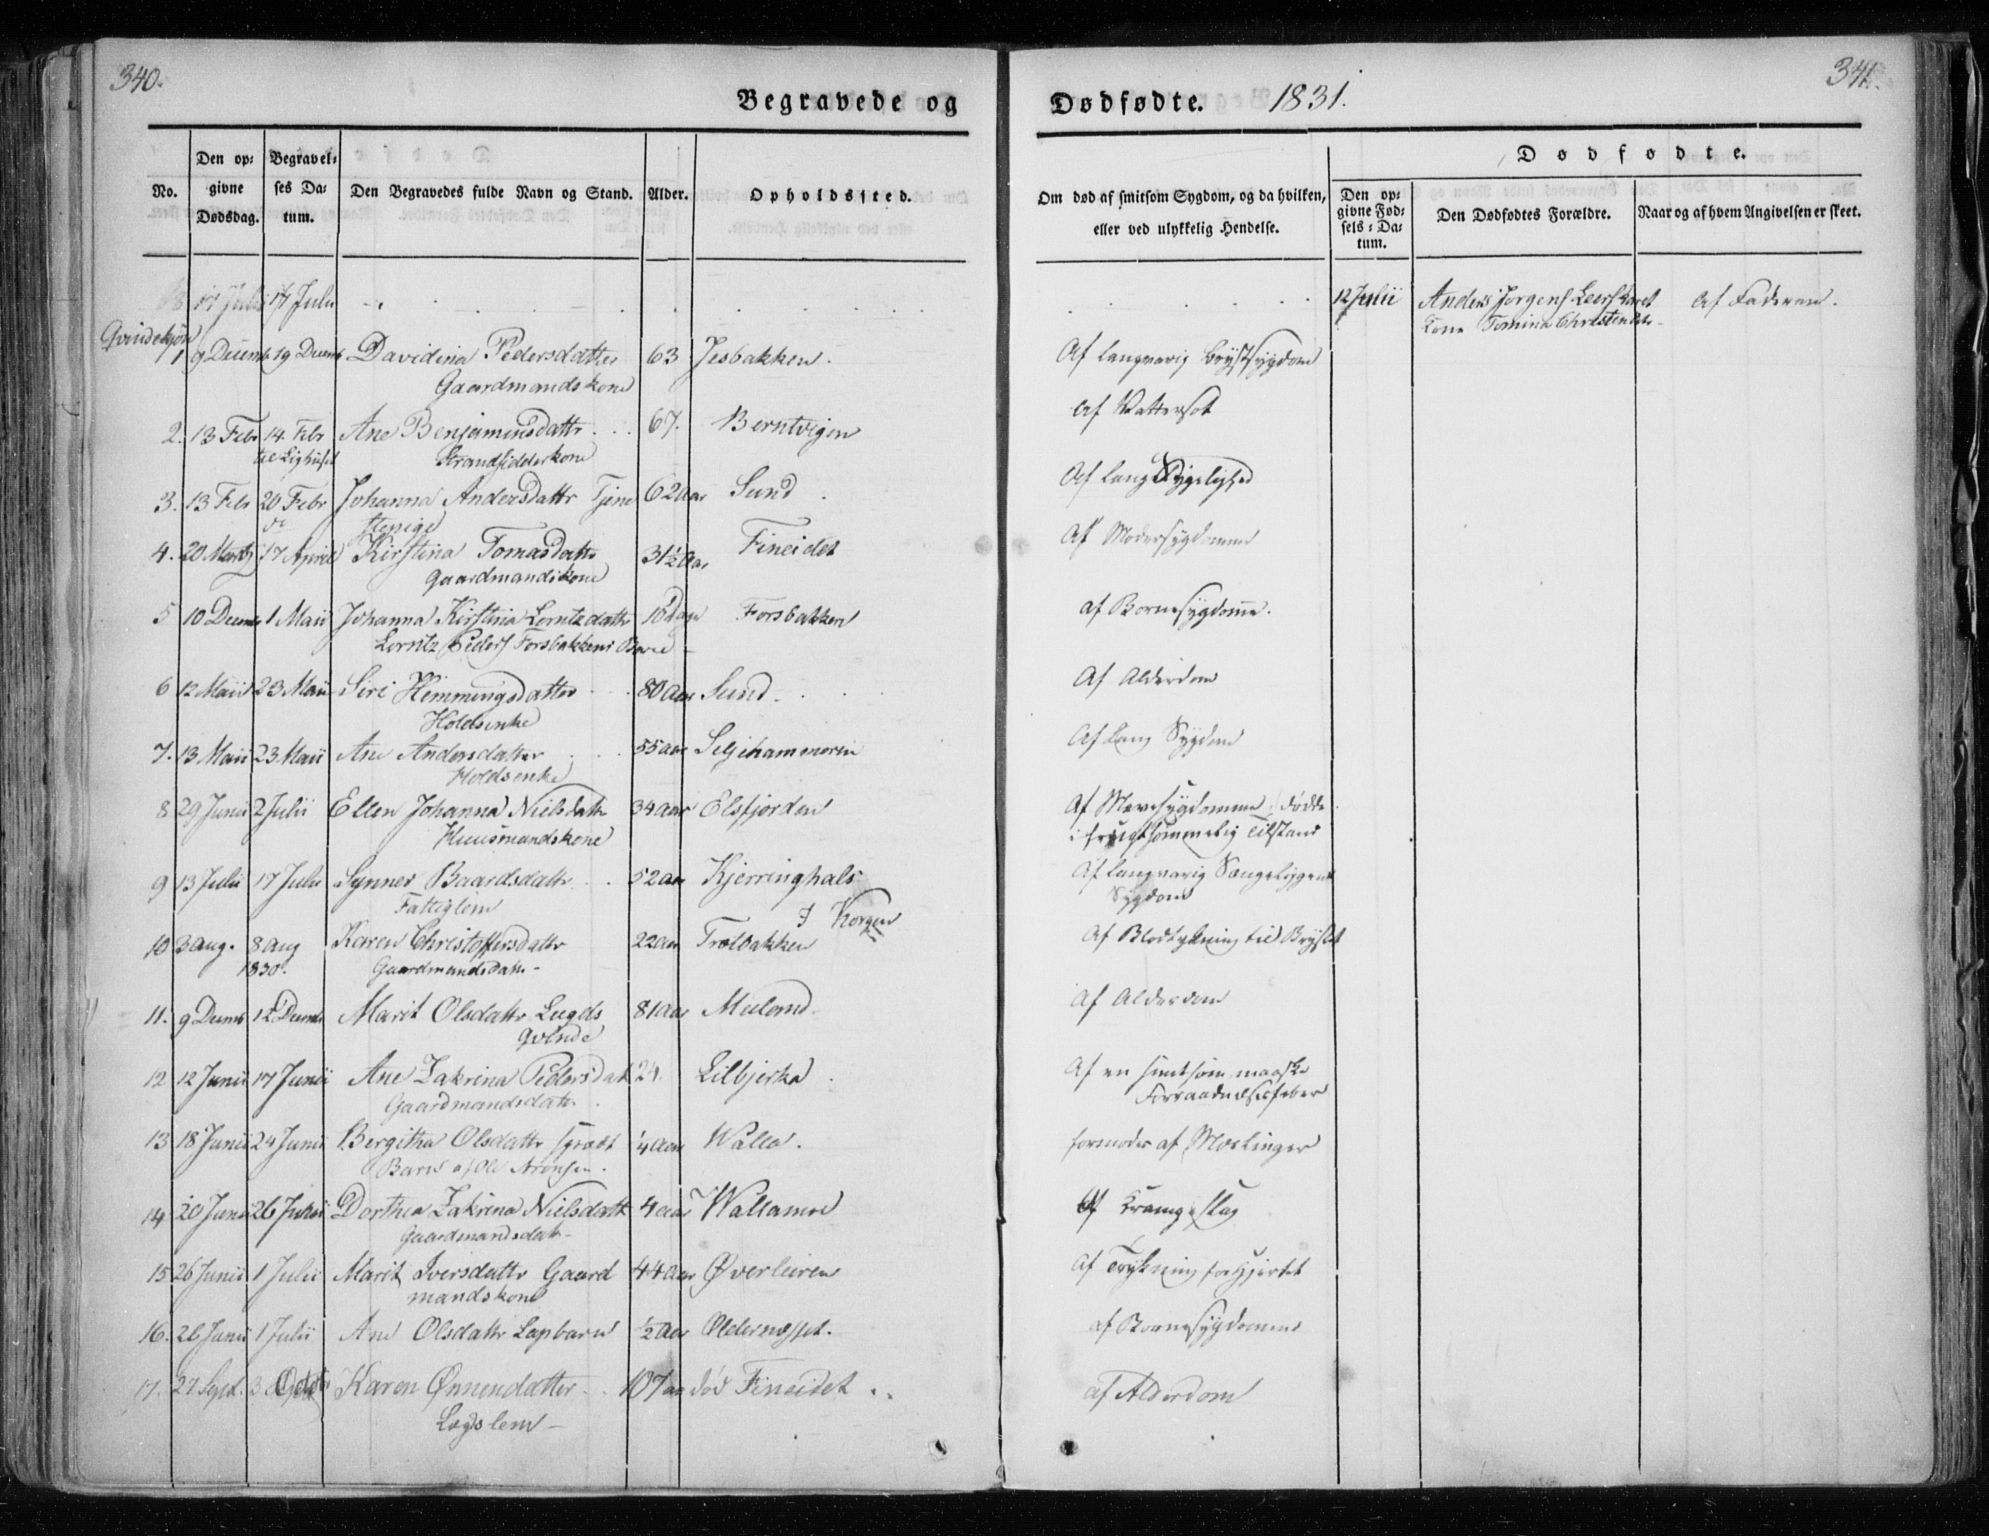 340.
Begravede og
Dødfødte. 1831.
341.
No.
Den opgivne Dødsdag.
Begravelses Datum.
Den Begravedes fulde Navn og Stand.
Alder.
Opholdssted.
Om død af smitsom Sygdom, og da hvilken, eller ved ulykkelig Hendelse.
Dødfødte.
Den opgivne Fødsels-Datum.
Den Dødfødtes Forældre.
Naar og af hvem Angivelsen er skeet.
17 Julii 12 Julii Anders Jørgens Af Faderen.
Kone Tomina Christensdtr
Qvindekjøn
1 9 Decemb 19 Decemb Davidina Pedersdatter 63 Jesbakken. Af langvarig Brystsygdom
Gaardmandskone
2. 13 Febr 14 Febr Ane Benjaminsdattr 67. Berntvigen Af Vattersot
til Lighuset Strandsidderkone
3. 13 Febr 20 Febr Johanna Andersdattr Tjene 62 Aar Sund Af lang Sygelighed
stepige
4. 20 Martz 17 April Kirstina Tomasdattr 31½ Aar Fineidet Af Modersygdomme
Gaardmandskone
5 10 Decemb 1 Maii Johanna Kirstina Lorntzdattr 16 Dage Forsbakken af Bornesygdomme.
Lorntz Peders Forsbakkens Barn
6 12 Maii 23 Maii Siri Hemmingsdatter 80 Aar Sund. Af Alderdom
Holdsenke
7. 13 Maii 23 Maii Ane Andersdatter 55 aar Seljehammeren Af Lang Sygdom
Holdsenke
8 29 Junii 2 Julii Ellen Johanna Nielsdatt 34 aar Elsfjorden Af Mavesygdomme, dødde
Huusmandskone i frugtsommelig Tilstand
9 13 Julii 17 Julii Synner Baardsdattr 52 aar Kjerringhals Af langvarig Sængeliggende
Fattiglem Sygdom
I Korgen
10 3 Aug. 8 Aug Karen Christoffersdattr 22 Aar Trolbakken Af Blodtykning til Brystet
1830. Gaardmandsdattr
11. 9 Decmb 12 Decmb Marit Olsdattr Legds 81 Aar Af Alderdom
Qvinde
12 12 Junii 17 Junii Ane Zakrina Pedersdatt 24. Lilbjerka Af en smitsom maaske
Gaardmandsdattr Forraadnelsesfeber
13 18 Junii 24 Junii Bergitha Olsdattr spædt ¼ Aar Walla. formodes af Mæslinger
Barn af Ole Aronsen.
14 20 Junii 26 Junii Dorthea Zakrina Nielsdatt 4 aar Wallamoe Af Krampeslag
Gaardmandsdattr
15 26 Junii 1 Julii Marit Iversdattr Gaard 44 Aar Øverleiren Af Trykning for Hjertet
mandskone
16. 26 Junii 1 Julii Ane Olsdattr Lapbarn ½ Aar Oldernæsset. af Bornesygdomme
17. 27 Sept. 3 Octobr Karen Önnendatter 107 aar død Fineidet af Alderdom
Lægslem